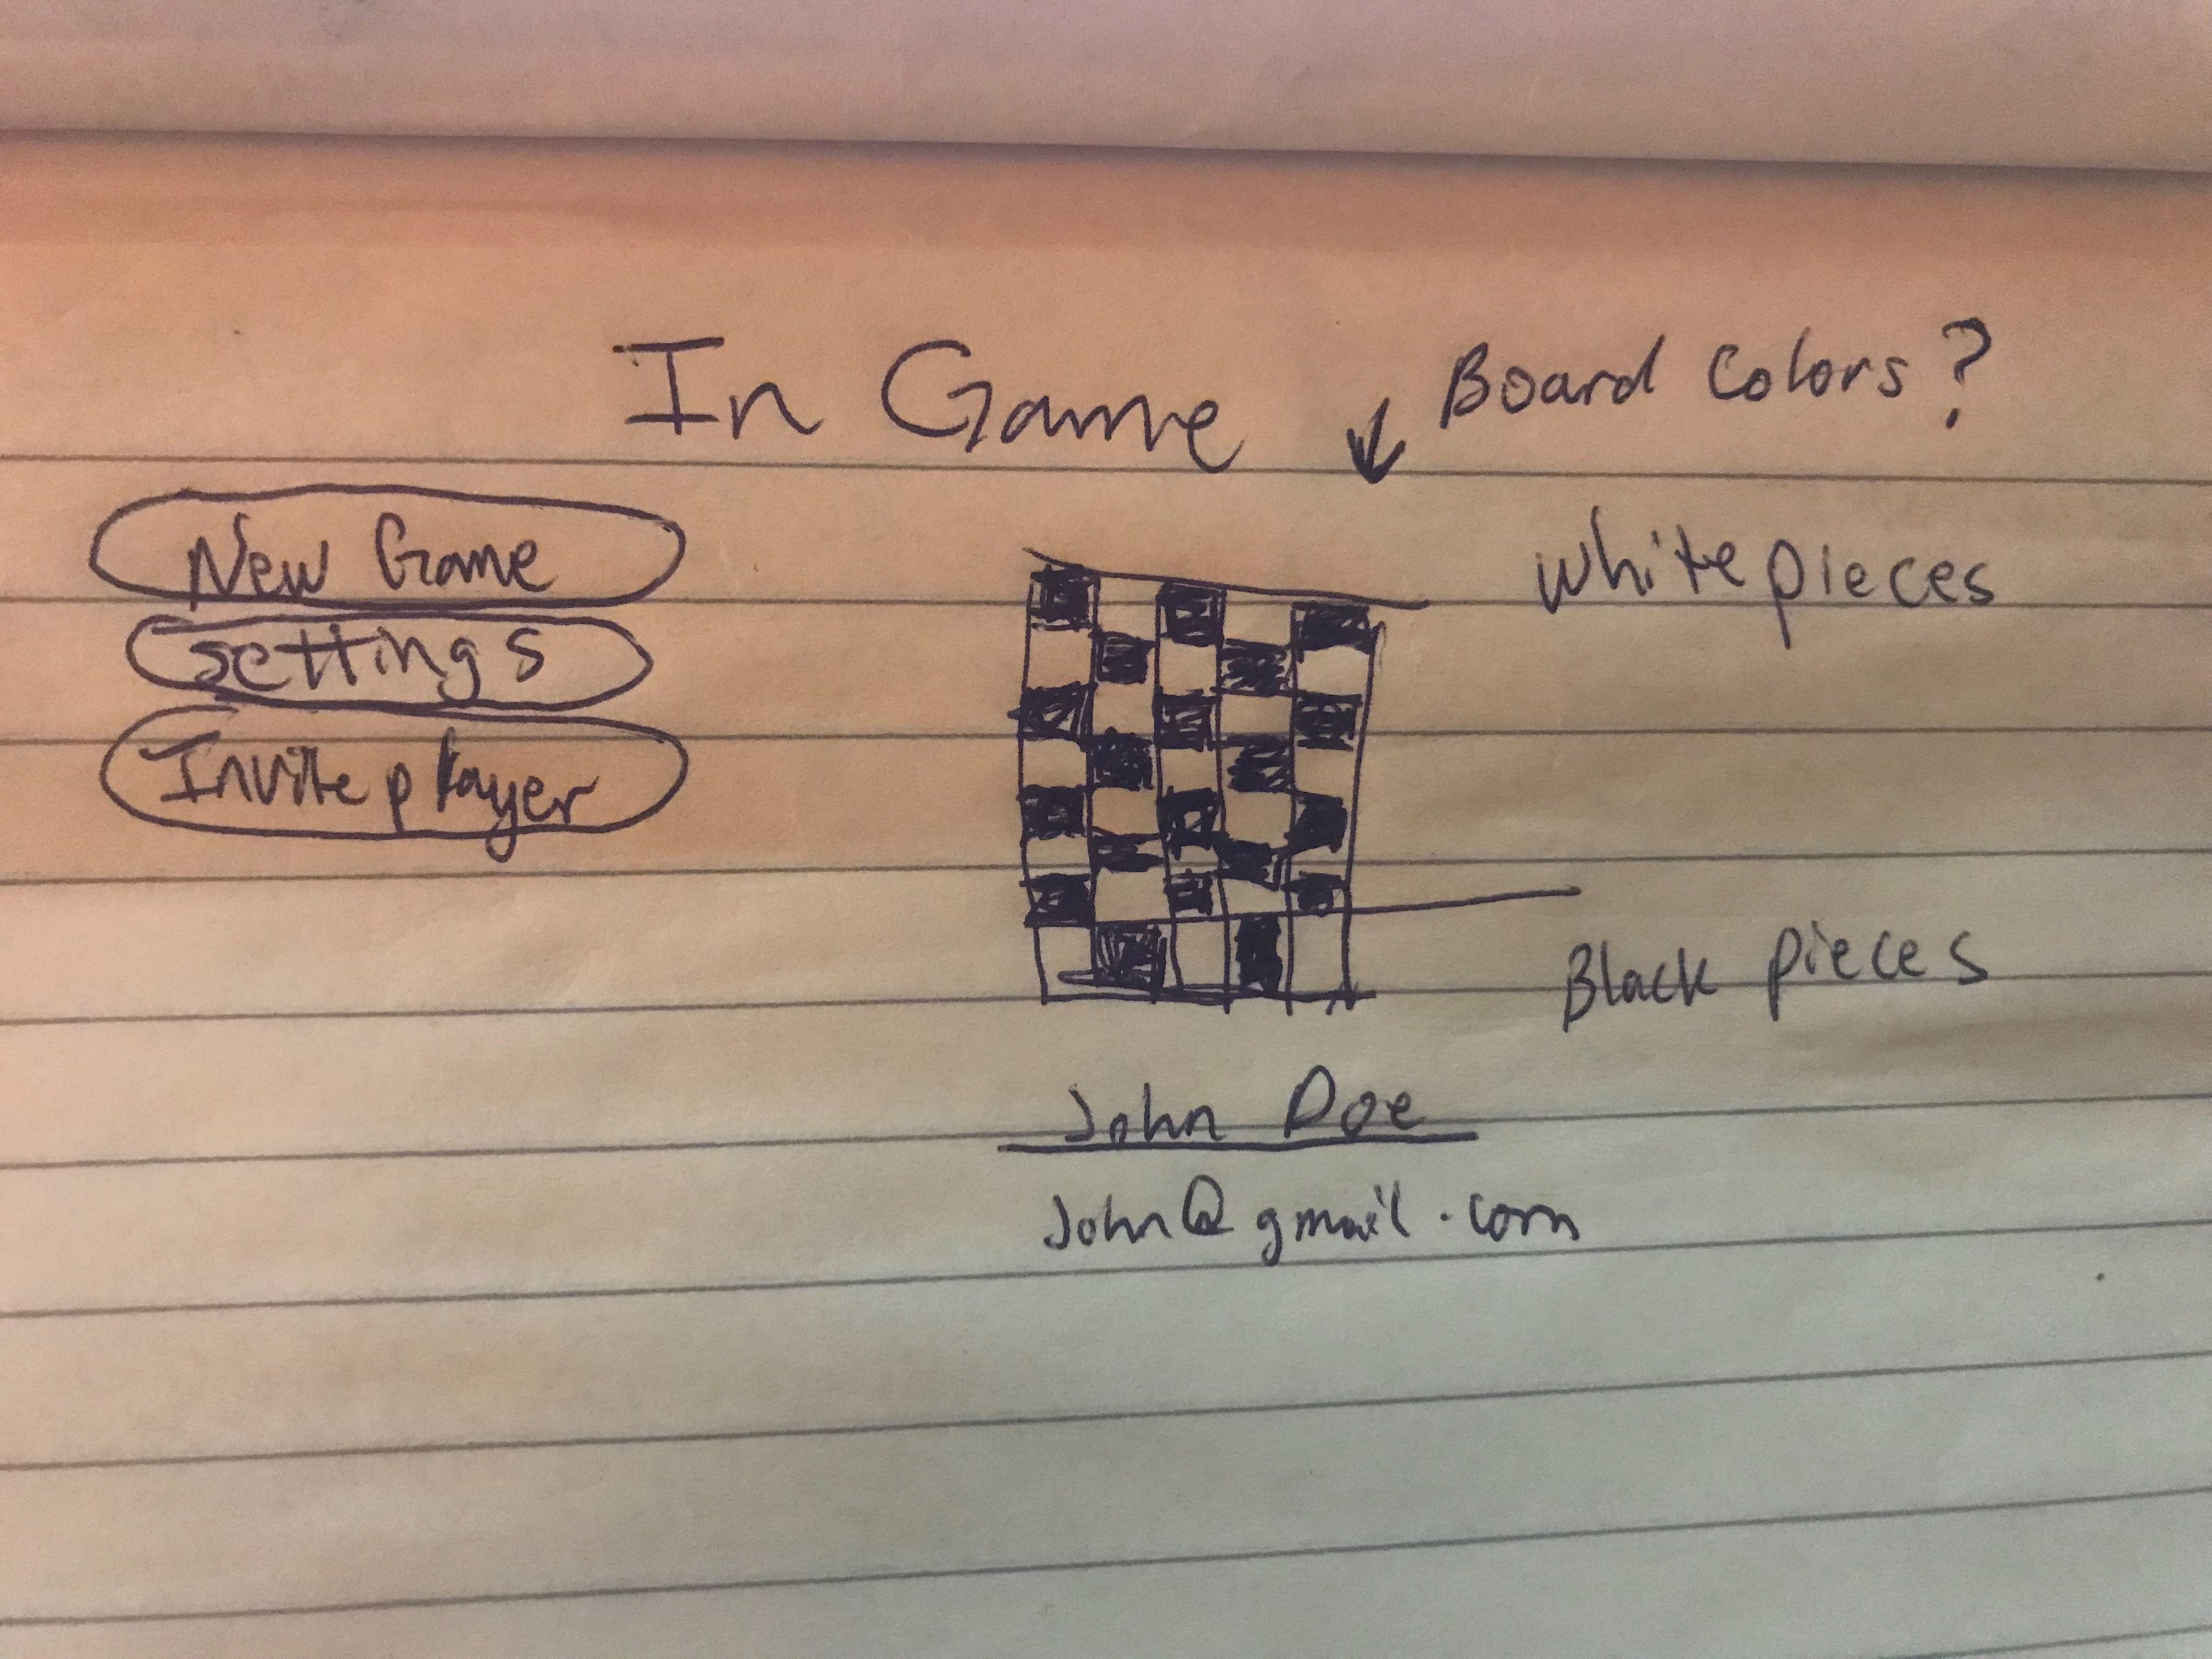 In Game
Board Colors?
New Game
settings
Invite player
white pieces
Black pieces
John Doe
John@gmail.com